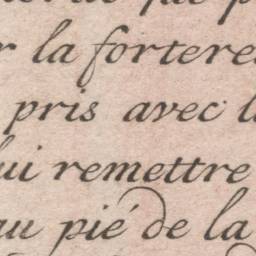 r la forteres
pris avec l
lui remettre
au pié de la